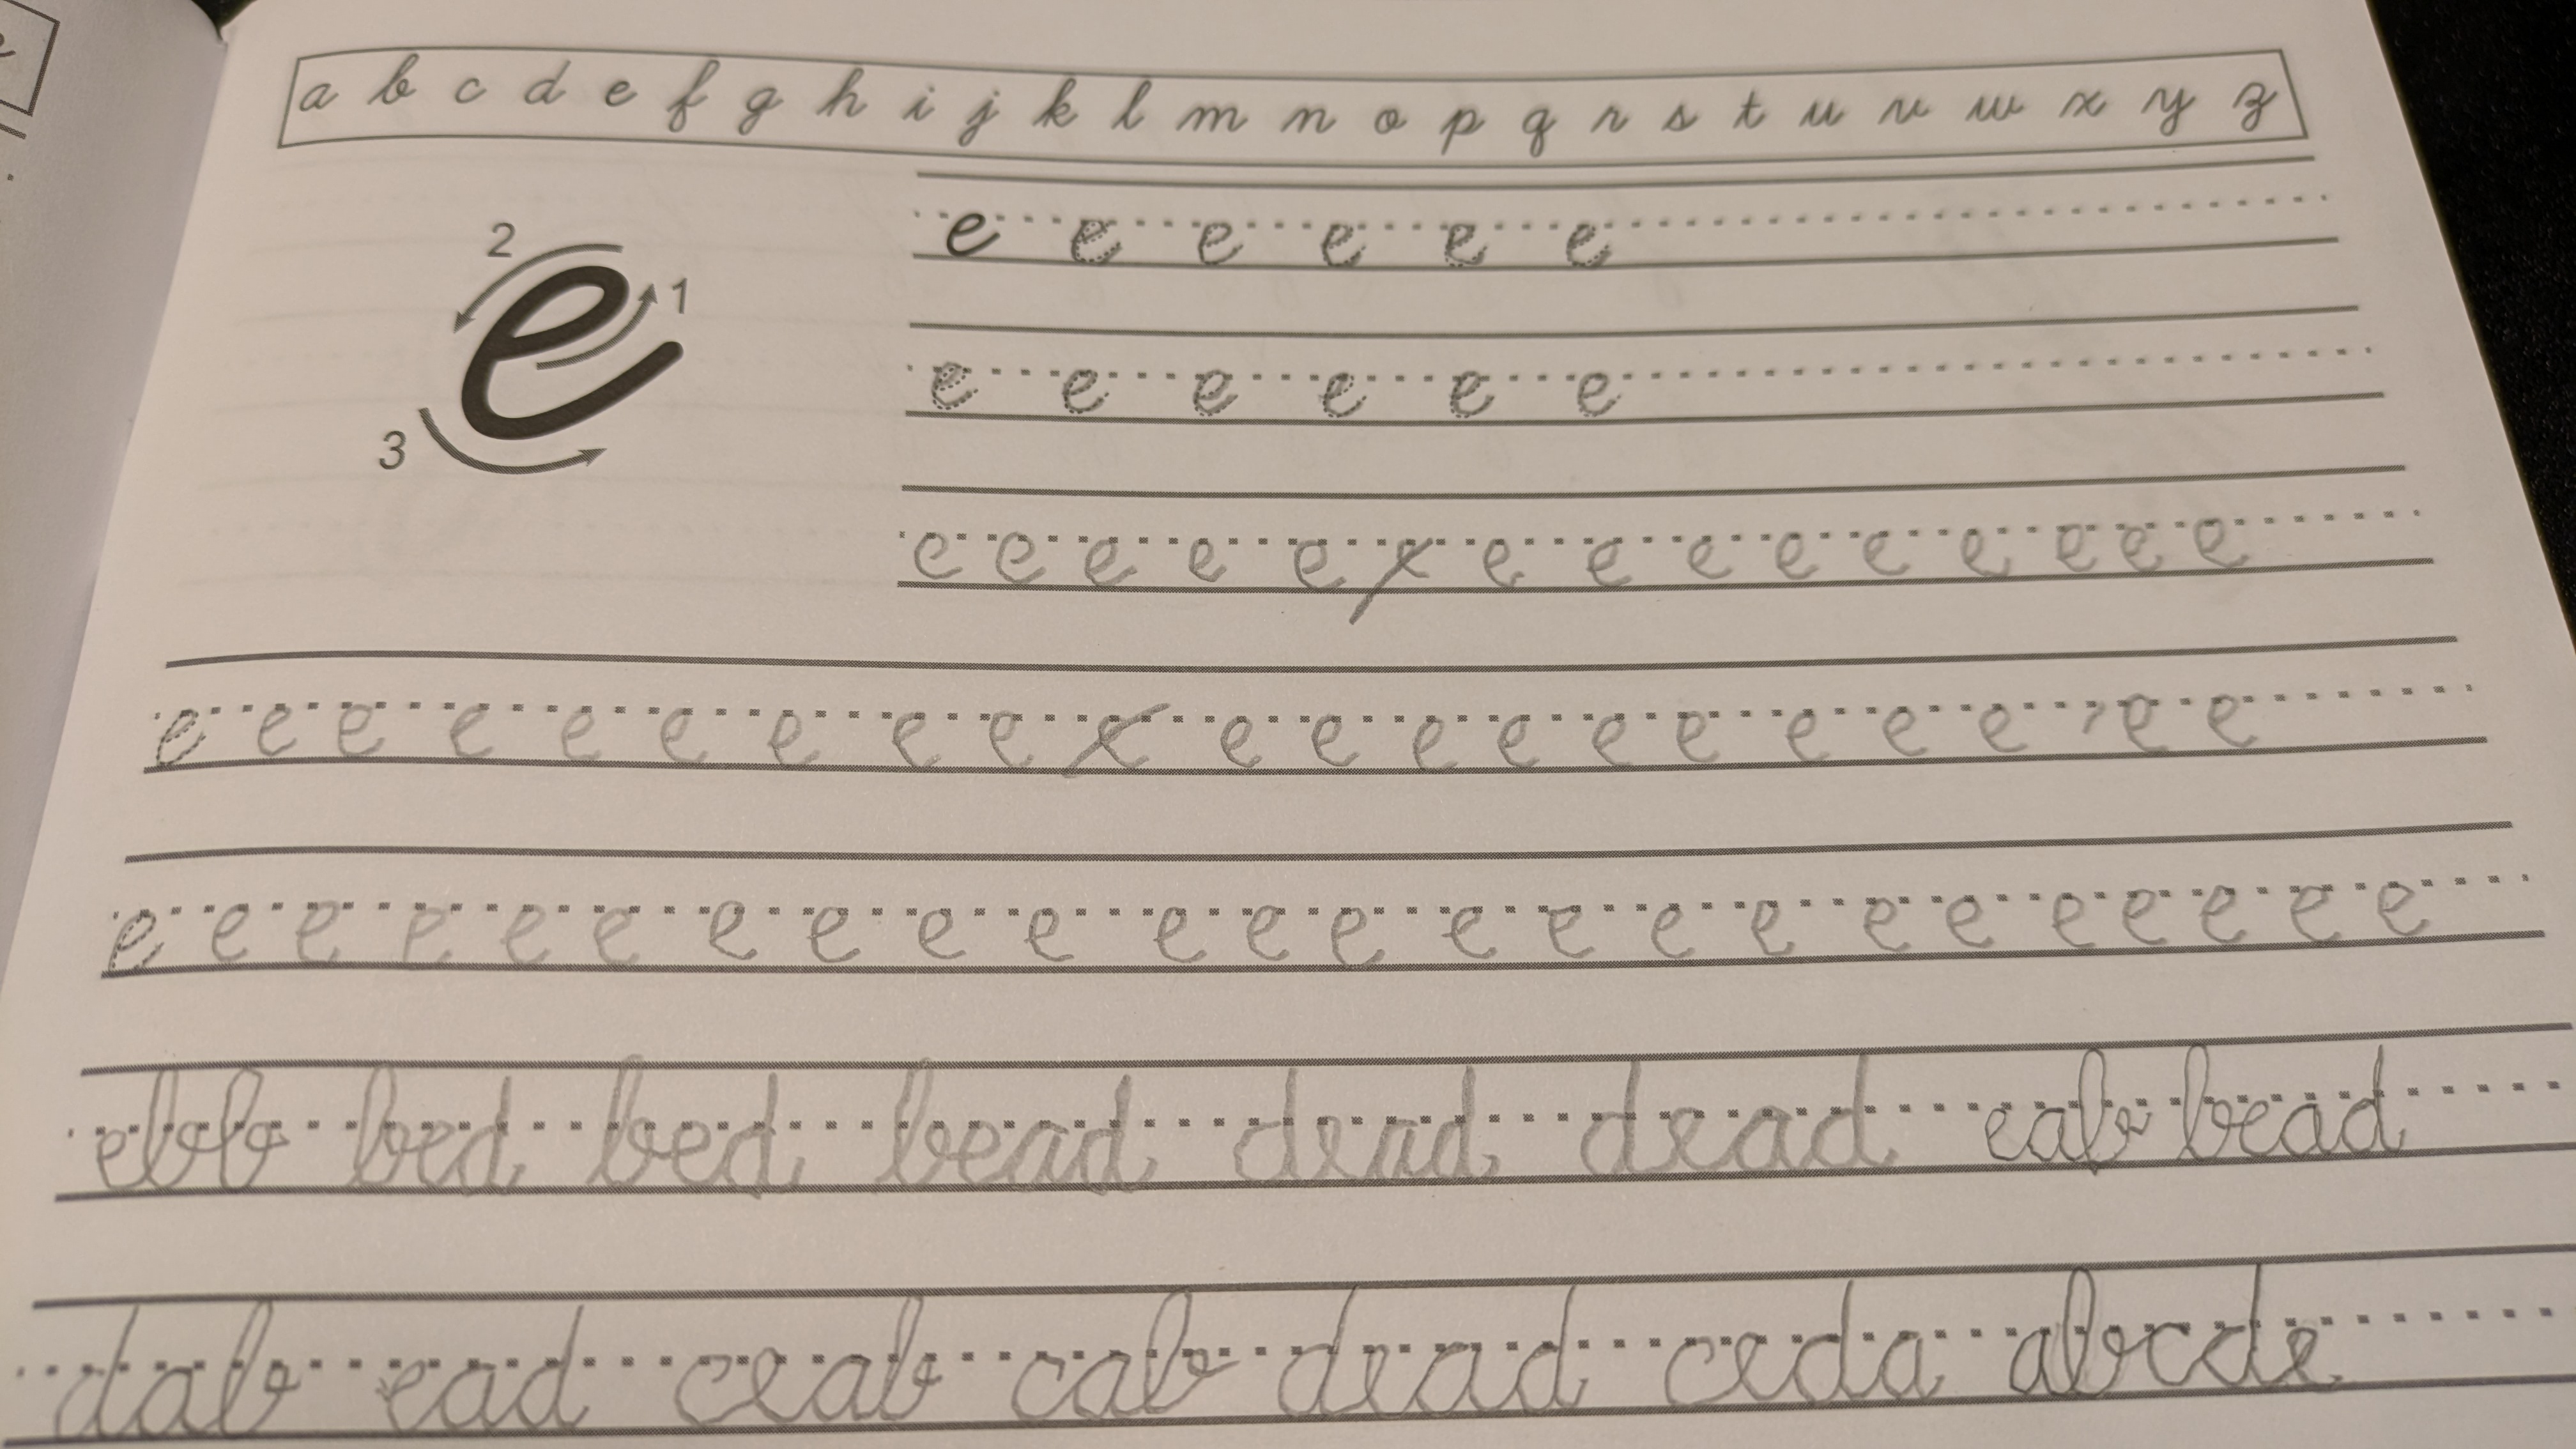 a b c d e f g h i j k l m n o p q r s t u v w x y z
2
1
3
e e e e e e
e e e e e e
e e e e e e e e e e e e e e e
e e e e e e e e e e e e e e e e e e e e e
e e e e e e e e e e e e e e e e e e e e e e e e
ebb bed bed bead dead dead eab bead
dab ead ceab cab dead ceda abcde